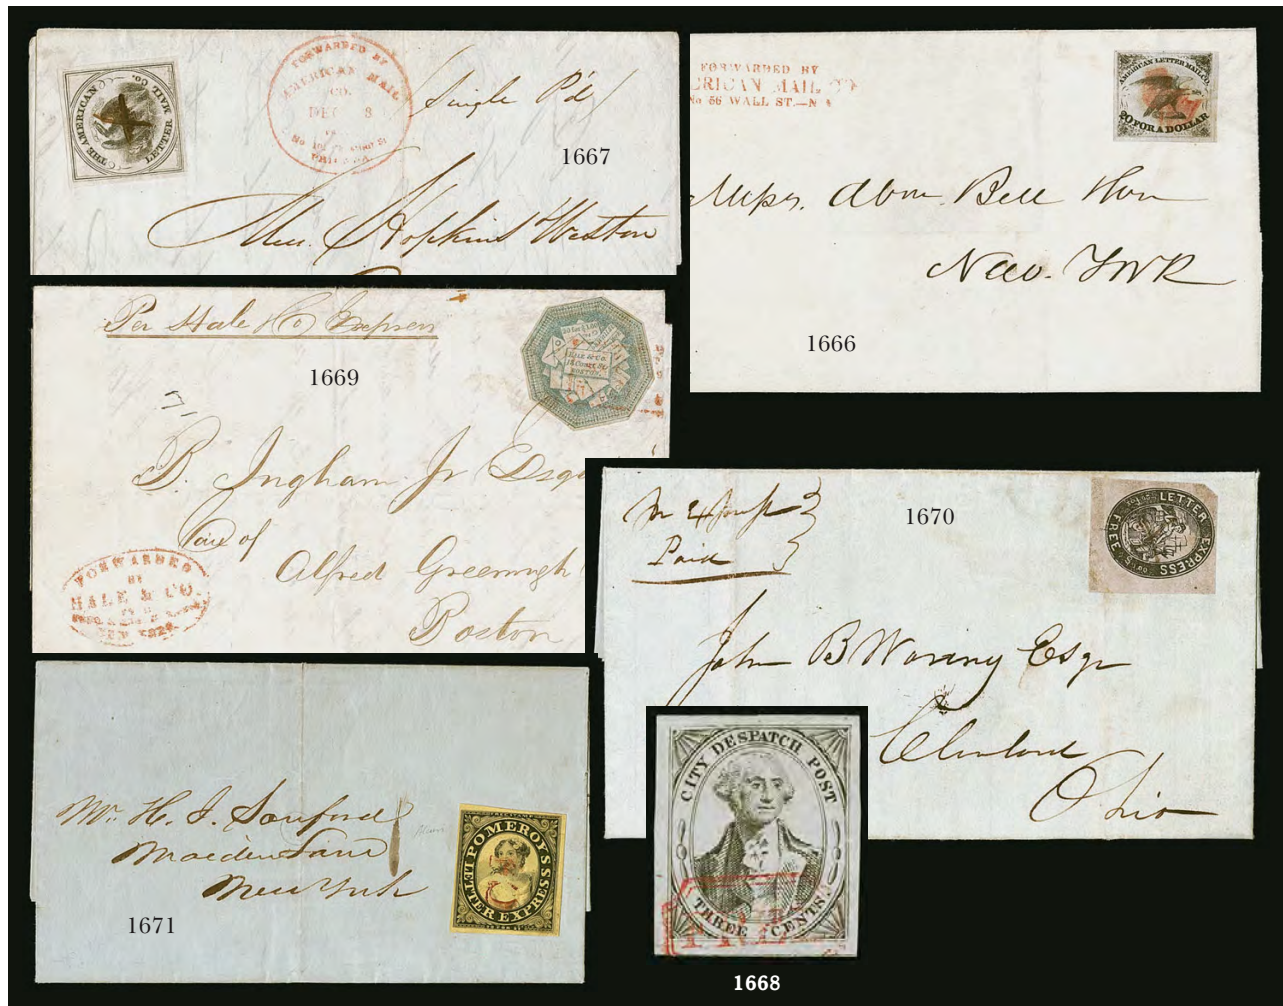 THE AMERICAN
LETTER MAIL CO.
FORWARDED BY
AMERICAN MAIL
CO.
DEC 3
PHILADA
Single P'd
1667
Hopkins Weston
FORWARDED BY
ERICAN MAIL CO
No 56 WALL ST.—N
AMERICAN LETTER MAIL CO.
20 FOR A DOLLAR
Messrs. Abm. Bell
New York
1666
Per Hale & Co Express
1669
HALE & CO.
13 Court St.
BOSTON.
B. Ingham Jr Esqr
Care of
Alfred Greenough
Boston
FORWARDED
BY
HALE & CO.
Paid
1670
LETTER EXPRESS
FREE
John B Waring Esqr
Cleveland
Ohio
Mr. H. J. Sanford
Maiden Lane
New York
1671
POMEROY'S
LETTER EXPRESS
CITY DESPATCH POST
THREE CENTS
1668